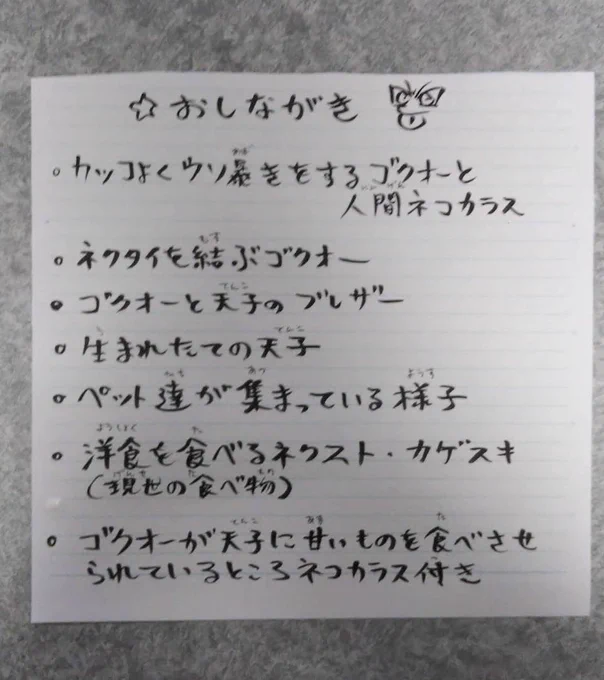 ☆おしながき
○カッコよくウソ暴きをするゴクオーと
人間ネコカラス
○ネクタイを結ぶゴクオー
○ゴクオーと天子のブレザー
○生まれたての天子
○ペット達が集まっている様子
○洋食を食べるネクスト・カゲスキ
(現世の食べ物)
○ゴクオーが天子に甘いものを食べさせ
られているところネコカラス付き